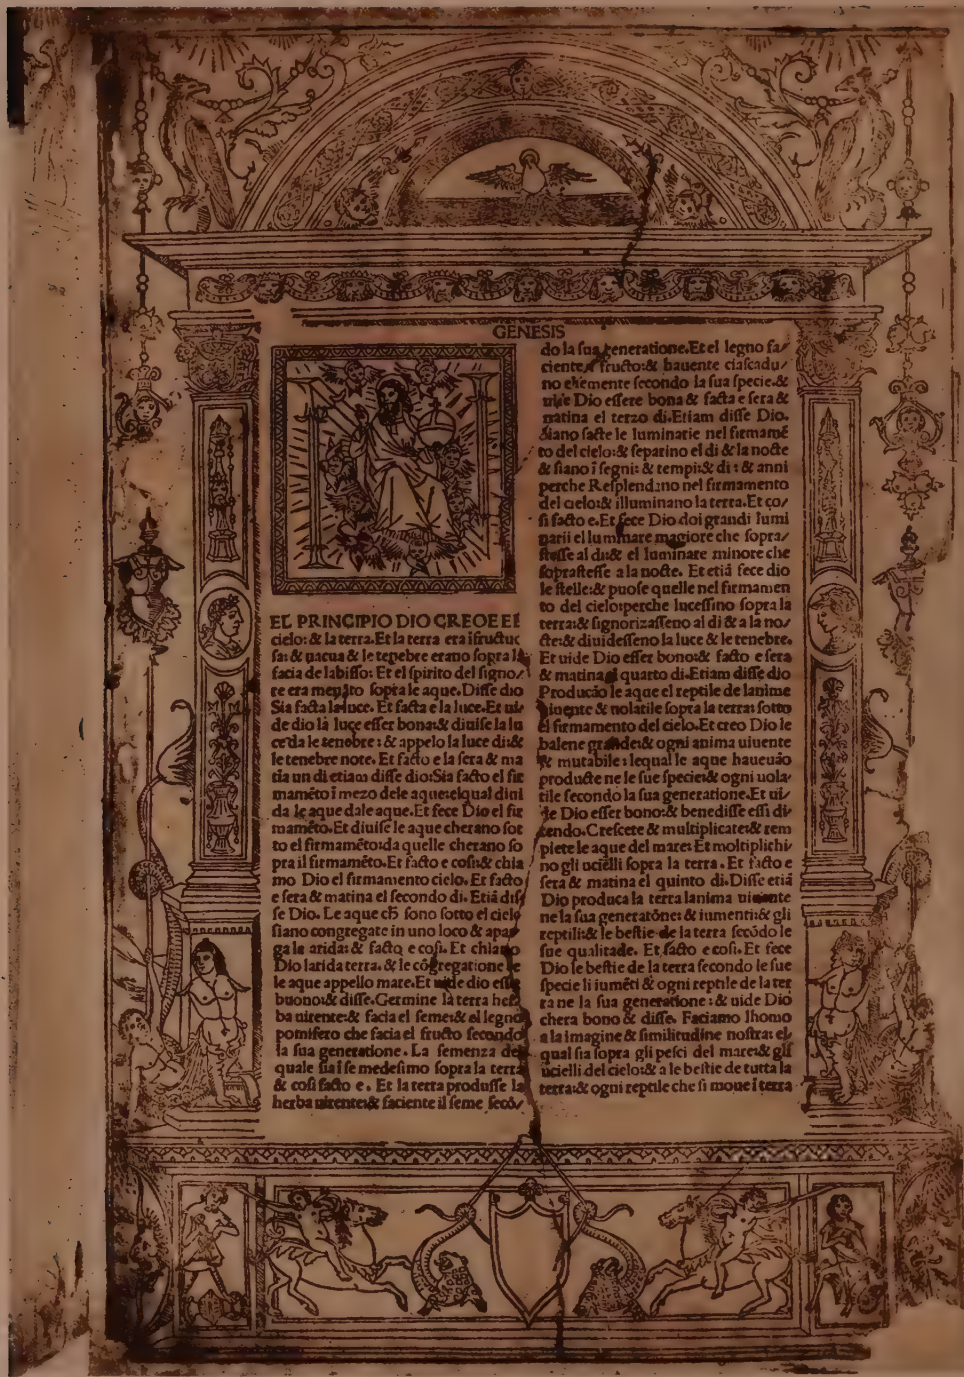 GENESIS
EL PRINCIPIO DIO CREOE EL
cielo: & la terra. Et la terra era ĩfructuo
sa: & uacua & le tenebre erano sopra la
facia de labisso: Et el spirito del signo/
re era menato sopra le aque. Disse dio
Sia facta la luce. Et facta e la luce. Et ui/
de dio la luce esser bona: & diuise la lu
ce da le tenebre: & appelo la luce di: &
le tenebre note. Et facto e la sera & ma
tia un di etiam disse dio: Sia facto el fir
mamẽto ĩ mezo dele aque: elqual diui
da le aque dale aque. Et fece Dio el fir
mamẽto. Et diuise le aque cherano sot
to el firmamẽto: da quelle cherano so
pra il firmamẽto. Et facto e cosi: & chia
mo Dio el firmamento cielo. Et facto
e sera & matina el secondo di. Etiã dis/
se Dio. Le aque ch̃ sono sotto el cielo
siano congregate in uno loco & apa/
ga le arida: & facto e cosi. Et chiamo
Dio larida terra. & le cõgregatione de
le aque appello mare. Et uide dio esse
buono: & disse. Germine la terra her/
ba uirente: & facia el seme: & el legno
pomifero che facia el fructo secondo
la sua generatione. La semenza del
quale sia ĩ se medesimo sopra la terra
& cosi facto e. Et la terra produsse la
herba uirente: & faciente il seme secõ/
do la sua generatione. Et el legno fa/
ciente fructo: & hauente ciascadu/
no semente secondo la sua specie. &
uide Dio essere bona & facta e sera &
matina el terzo di. Etiam disse Dio.
Siano facte le luminarie nel firmamẽ
to del cielo: & separino el di & la nocte
& siano ĩ segni: & tempi: & di: & anni
perche Resplendano nel firmamento
del cielo: & illuminano la terra. Et co/
si facto e. Et fece Dio doi grandi lumi
narii el luminare magiore che sopra/
stesse al di: & el luminare minore che
soprastesse a la nocte. Et etiã fece dio
le stelle: & puose quelle nel firmamen
to del cielo: perche lucessino sopra la
terra: & signorizasseno al di & a la no/
cte: & diuidesseno la luce & le tenebre.
Et uide Dio esser bono: & facto e sera
& matina el quarto di. Etiam disse dio
Producão le aque el reptile de lanime
uiuente & uolatile sopra la terra: sotto
el firmamento del cielo. Et creo Dio le
balene grande: & ogni anima uiuente
& mutabile: lequal le aque haueuão
producte ne le sue specie: & ogni uola/
tile secondo la sua generatione. Et ui/
de Dio esser bono: & benedisse essi di
cendo. Crescete & multiplicate: & rem
piete le aque del mare: Et moltiplichi/
no gli ucielli sopra la terra. Et facto e
sera & matina el quinto di. Disse etiã
Dio produca la terra lanima uiuente
ne la sua generatõne: & iumenti: & gli
reptili: & le bestie de la terra secõdo le
sue qualitade. Et facto e cosi. Et fece
Dio le bestie de la terra secondo le sue
specie li iumẽti & ogni reptile de la ter
ra ne la sua generatione: & uide Dio
chera bono & disse. Faciamo lhomo
a la imagine & similitudine nostra: el
qual sia sopra gli pesci del mare: & gli
ucielli del cielo: & a le bestie de tutta la
terra: & ogni reptile che si moue ĩ terra